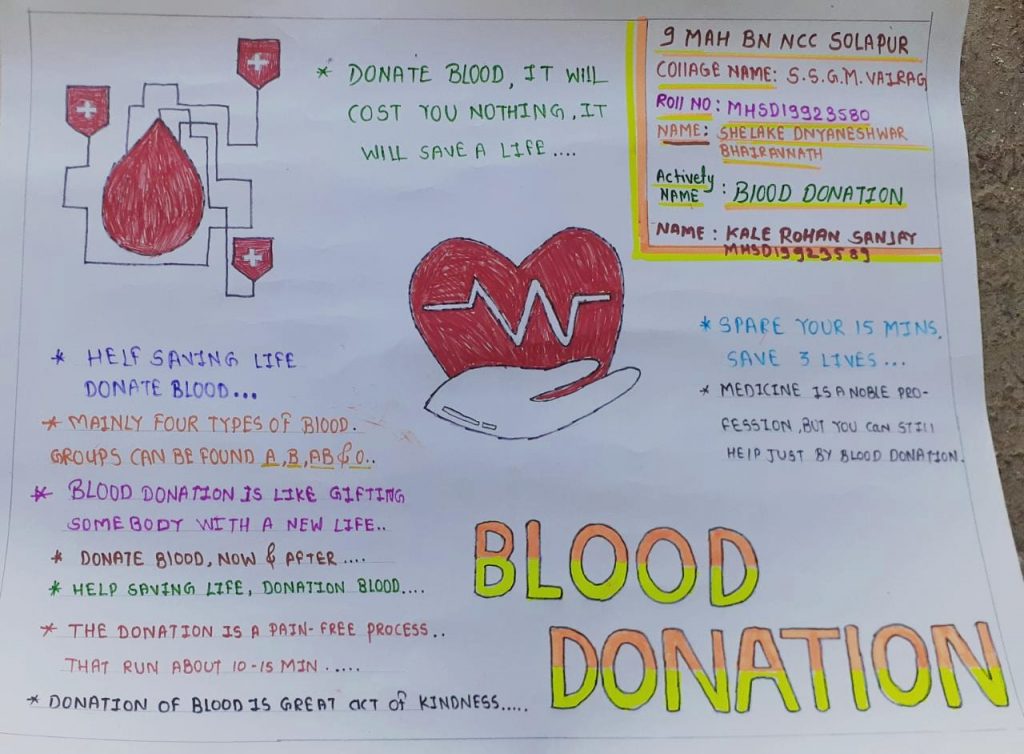 * DONATE BLOOD, IT WILL
COST YOU NOTHING, IT
WILL SAVE A LIFE ....
9 MAH BN NCC SOLAPUR
COllAGE NAME: S.S.G.M. VAIRAG
ROll NO : MHSD19923580
NAME: SHELAKE DNYANESHWAR
BHAIRAVNATH
Actively
NAME : BlOOD DONATION
NAME : KALE ROHAN SANJAY
MHSD19923589
* HELF SAVING LIFE
DONATE BLOOD...
* MAINLY FOUR TYPES OF BLOOD.
GROUPS CAN BE FOUND A, B, AB & O..
* BLOOD DONATION IS LIKE GIFTING
SOMEBODY WITH A NEW LIFE..
* DONATE BlOOD, NOW & AFTER ....
* HELP SAVING LIFE, DONATION BLOOD....
* THE DONATION IS A PAIN-FREE PROCESS..
THAT RUN ABOUT 10-15 MIN .....
* DONATION OF BLOOD IS GREAT act of KINDNESS.....
* SPARE YOUR 15 MINS,
SAVE 3 LIVES...
* MEDICINE IS A NOBLE PRO-
FESSION, BUT YOU CAN STIll
HElP JUST BY BLOOD DONATION.
BLOOD
DONATION